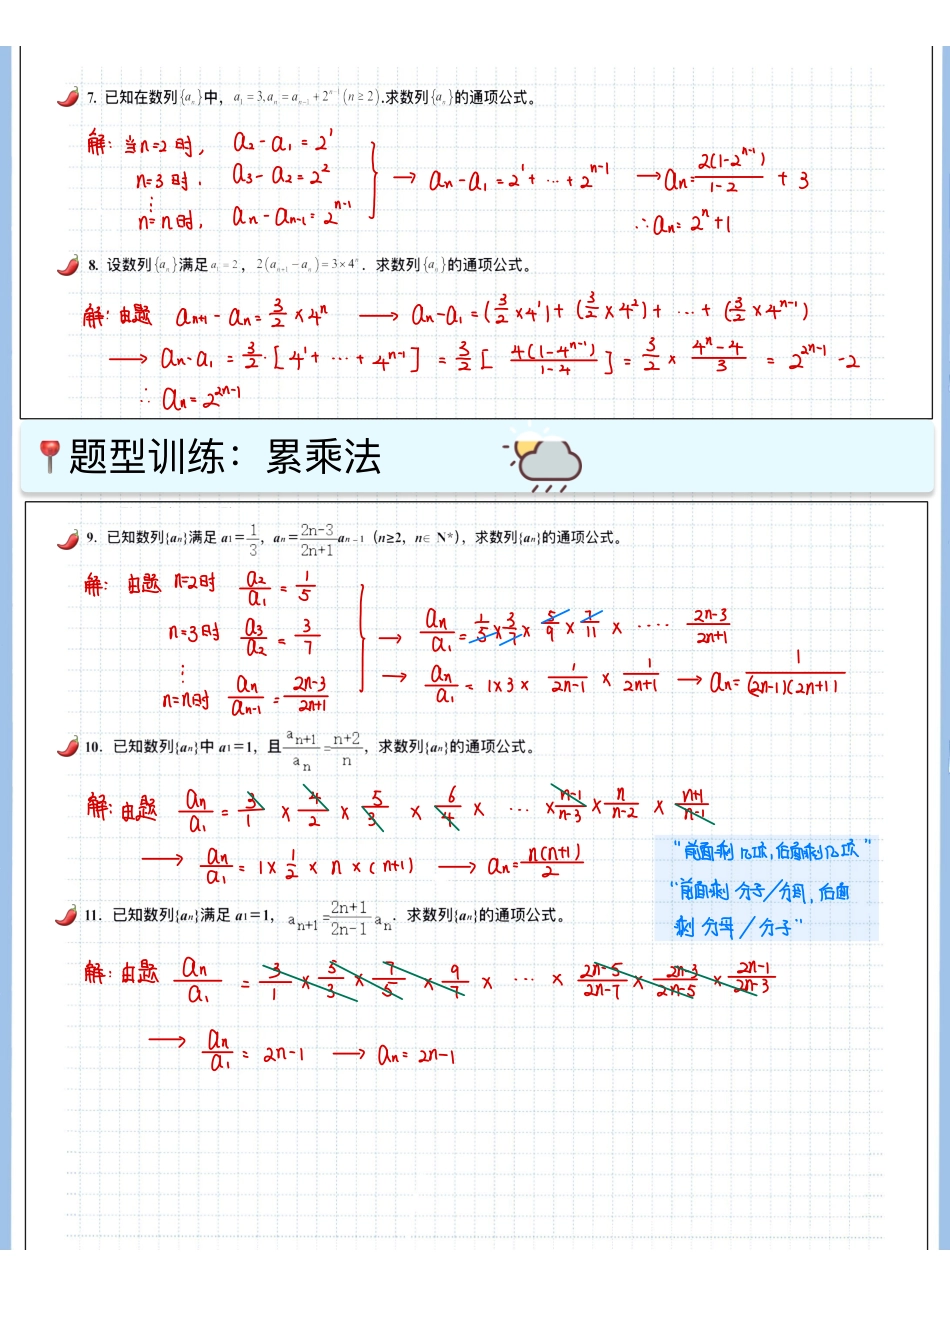 7. 已知在数列{aₙ}中，a₁=3,aₙ=aₙ₋₁+2ⁿ⁻¹(n≥2).求数列{aₙ}的通项公式。
解：当n=2时， a₂-a₁=2¹
n=3时． a₃-a₂=2² → aₙ-a₁=2¹+…+2ⁿ⁻¹ → aₙ=2(1-2ⁿ⁻¹)/1-2 + 3
⋮
n=n时， aₙ-aₙ₋₁=2ⁿ⁻¹ ∴aₙ=2ⁿ+1
8. 设数列{aₙ}满足a₁=2，2(aₙ₊₁-aₙ)=3×4ⁿ．求数列{aₙ}的通项公式。
解：由题 aₙ₊₁-aₙ=3/2×4ⁿ → aₙ-a₁=(3/2×4¹)+(3/2×4²)+…+(3/2×4ⁿ⁻¹)
→ aₙ-a₁=3/2·[4¹+…+4ⁿ⁻¹]=3/2[4(1-4ⁿ⁻¹)/1-4]=3/2×4ⁿ-4/3=2²ⁿ⁻¹-2
∴aₙ=2²ⁿ⁻¹
题型训练：累乘法
9. 已知数列{an}满足 a1=1/3，an=2n-3/2n+1 an-1（n≥2，n∈N*），求数列{an}的通项公式。
解：由题 n=2时 a₂/a₁=1/5
n=3时 a₃/a₂=3/7 → aₙ/a₁=1/5×3/7×5/9×7/11×····2n-3/2n+1
⋮
n=n时 aₙ/aₙ₋₁=2n-3/2n+1 → aₙ/a₁=1×3×1/2n-1×1/2n+1 → aₙ=1/(2n-1)(2n+1)
10. 已知数列{an}中 a1=1，且aₙ₊₁/aₙ=n+2/n，求数列{an}的通项公式。
解：由题 aₙ/a₁=3/1×4/2×5/3×6/4×…×n-1/n-3×n/n-2×n+1/n-1
→ aₙ/a₁=1×1/2×n×(n+1) → aₙ=n(n+1)/2
“前面剩几项，后面剩几项”
“前面剩分子/分母，后面
剩分母/分子”
11. 已知数列{an}满足 a1=1，aₙ₊₁=2n+1/2n-1 aₙ．求数列{an}的通项公式。
解：由题 aₙ/a₁=3/1×5/3×7/5×9/7×…×2n-5/2n-7×2n-3/2n-5×2n-1/2n-3
→ aₙ/a₁=2n-1 → aₙ=2n-1